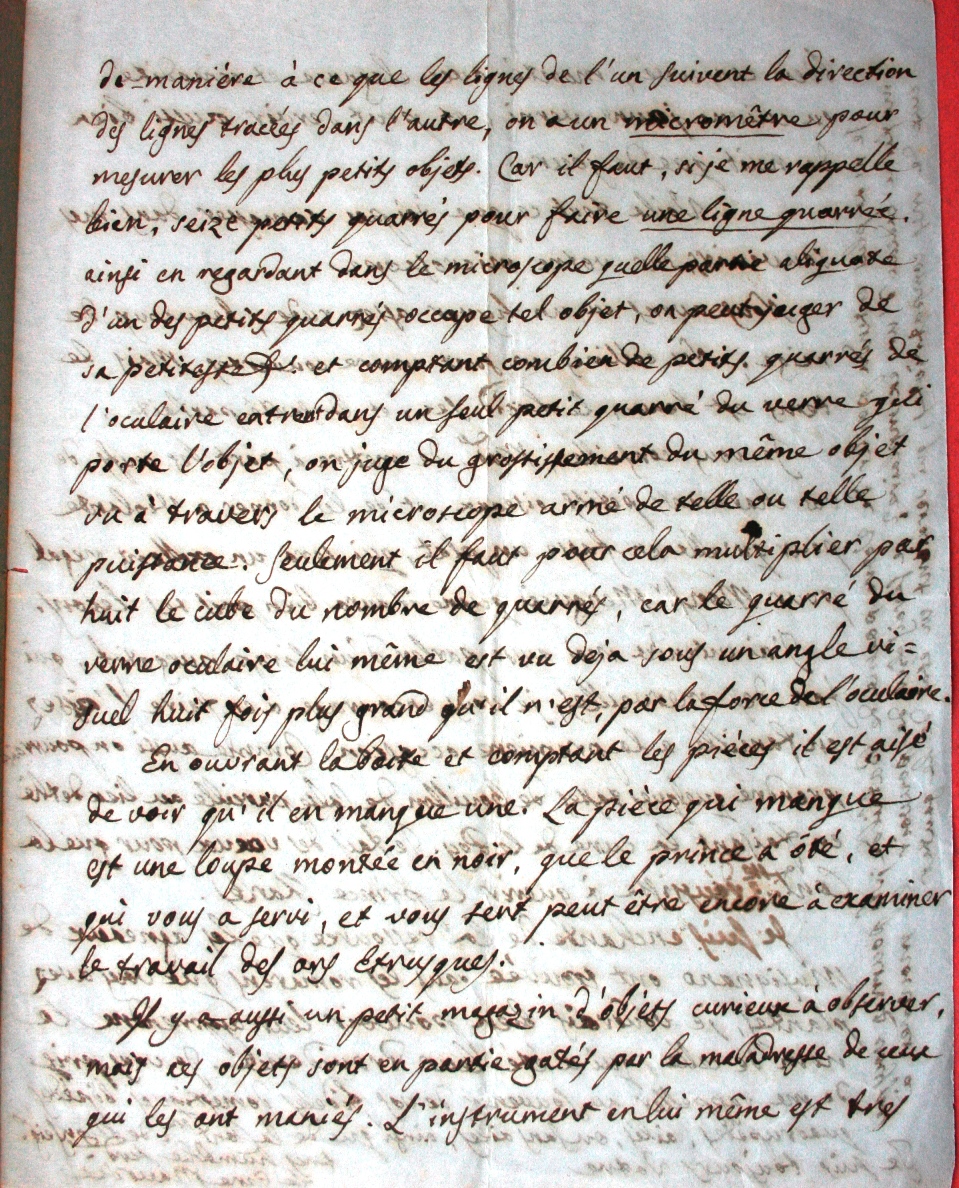 de manière à ce que les lignes de l'un suivent la direction
des lignes tracées dans l'autre, on a un micromêtre pour
mesurer les plus petits objets. Car il faut, si je me rappelle
bien, seize petits quarrés pour faire une ligne quarrée.
ainsi en regardant dans le microscope quelle partie aliquote
d'un des petits quarrés occupe tel objet, on peut juger de
sa petitesse. et comptant combien de petits quarrés de
l'oculaire entrent dans un seul petit quarré du verre qui
porte l'objet, on juge du grossissement du même objet
vu à travers le microscope armé de telle ou telle
puissance. Seulement il faut pour cela multiplier par
huit le cube du nombre de quarrés, car le quarré du
verre oculaire lui même est vu deja sous un angle vi=
suel huit fois plus grand qu'il n'est, par la force de l'oculaire.
En ouvrant la boite et comptant les pièces il est aisé
de voir qu'il en manque une. La pièce qui manque
est une loupe montée en noir, que le prince a ôté, et
qui vous a servi, et vous sert peut être encore à examiner
le travail des ors Etrusques.
Il y a aussi un petit magazin d'objets curieux à observer,
mais ces objets sont en partie gatés par la maladresse de ceux
qui les ont maniés. L'instrument en lui même est très